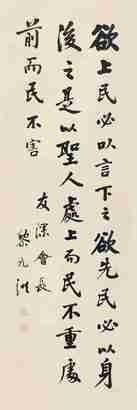 欲上民必以言下之欲先民必以身
後之是以聖人處上而民不重處
前而民不害
友深會長
黎元洪